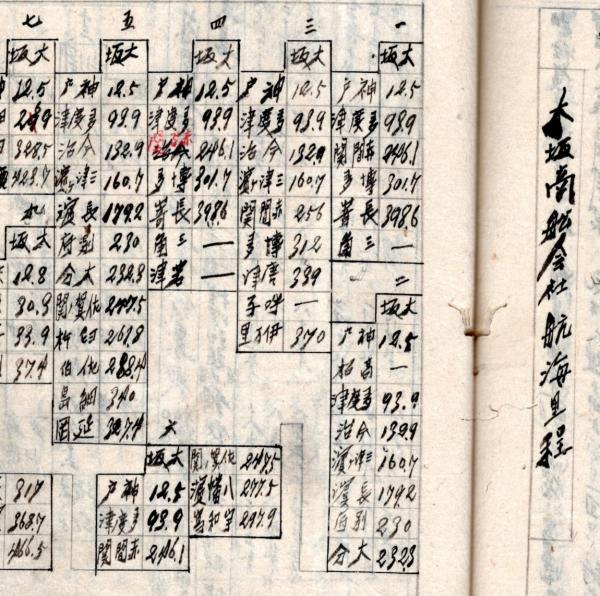 大坂商船会社航海里程
一
大坂
神戸 12.5
多度津 93.9
赤間関 246.1
博多 301.7
長嵜 398.6
三角 —
二
大坂
神戸 12.5
高松 —
多度津 93.9
今治 132.9
三津ヶ濱 160.7
長濱 179.2
別府 230
大分 232.3
三
大坂
神戸 12.5
多度津 93.9
今治 132.9
三津ヶ濱 160.7
赤間関 256
博多 312
唐津 339
呼子 —
伊万里 370
四
大坂
神戸 12.5
多度津 93.9
赤間関 246.1
博多 301.7
長嵜 398.6
三角 —
若津 —
五
大坂
神戸 12.5
多度津 93.9
今治 132.9
三津ヶ濱 160.7
長濱 179.2
別府 230
大分 232.3
佐賀ノ関 247.5
臼杵 263.8
佐伯 288.4
細島 340
延岡 347.4
六
大坂
神戸 12.5
多度津 93.9
赤間関 246.1
佐賀ノ関 247.5
八幡濱 277.5
宇和島 297.9
七
大坂
12.5
328.5
423.7
大坂
12.8
30.3
33.9
37.4
317
368.7
466.5